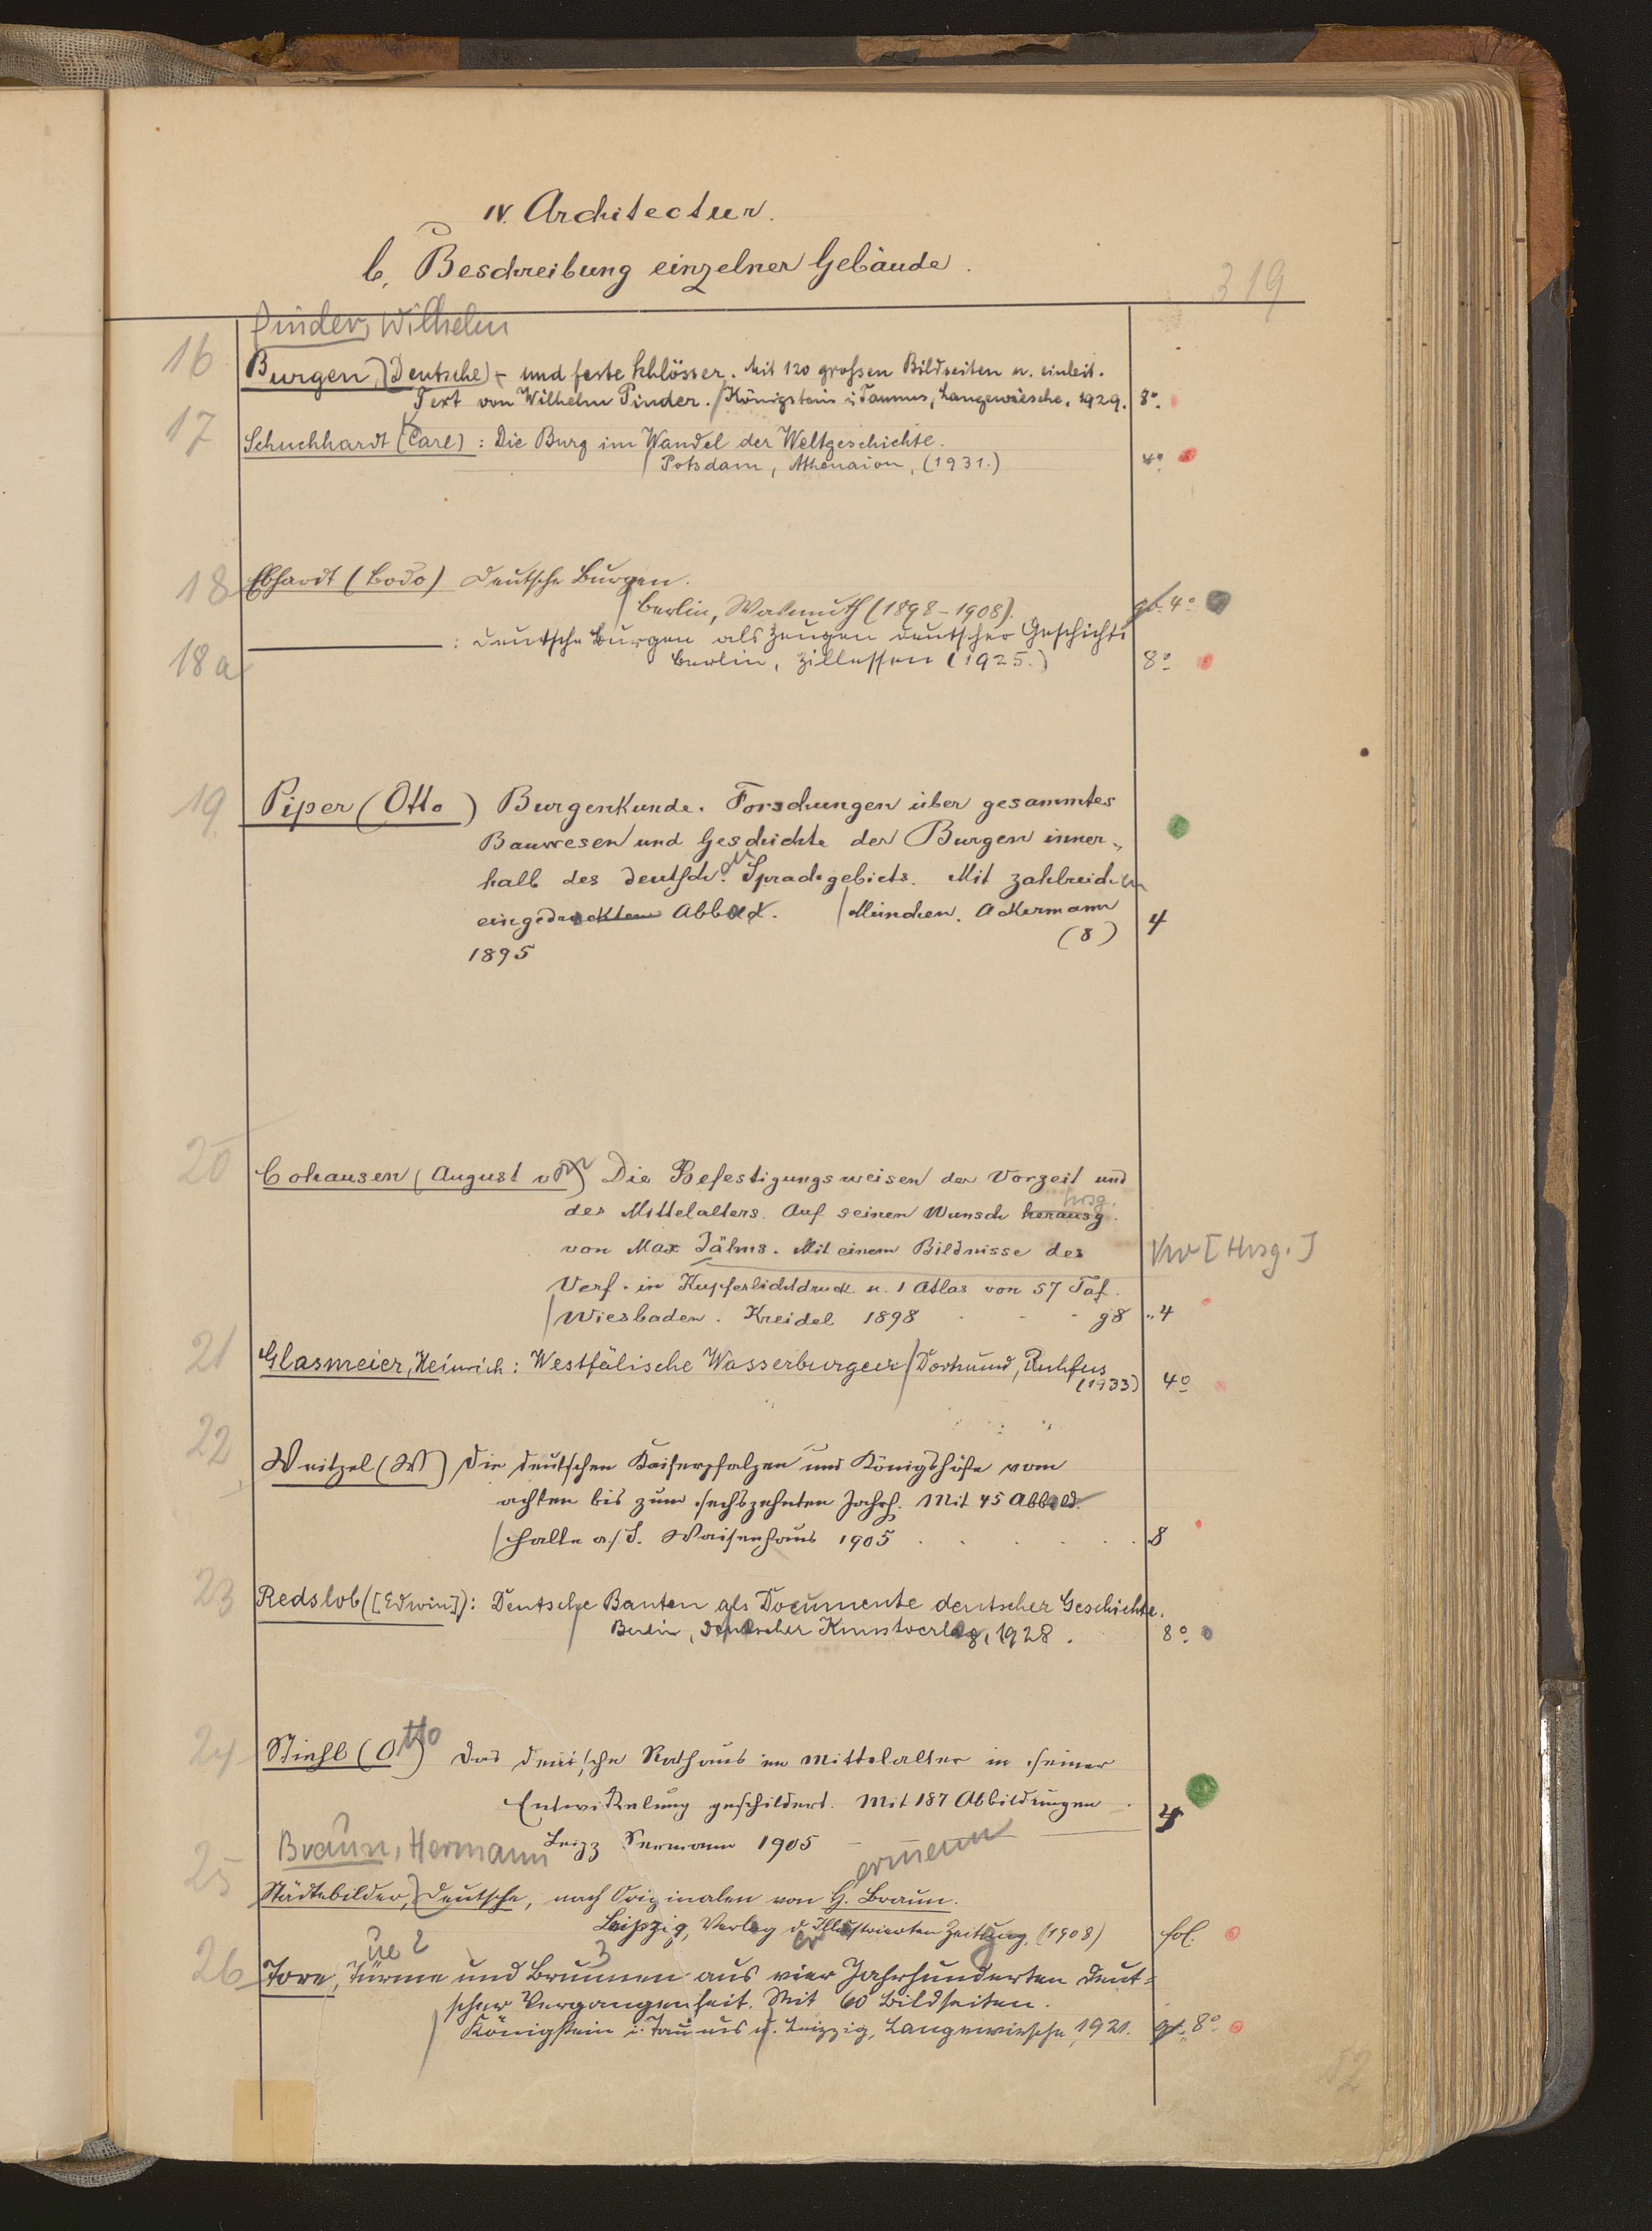 IV. Architectur.
b. Beschreibung einzelner Gebäude.
319
Pinder, Wilhelm
16 Burgen, (Deutsche) - und feste Schlösser. Mit 120 großen Bildseiten u. einleit.
Text von Wilhelm Pinder. / Königstein i. Taunus, Langewiesche, 1929. 8°.
17 Schuchhardt (Carl) : Die Burg im Wandel der Weltgeschichte.
Potsdam, Athenaion, (1931.) 4°
18 Ebhardt (Bodo) Deutsche Burgen.
Berlin, Wasmuth (1898-1908). 4°
18a : Deutsche Burgen als Zeugen deutscher Geschichte
Berlin, Zillessen (1925.) 8°
19 Piper (Otto) Burgenkunde. Forschungen über gesammtes
Bauwesen und Geschichte der Burgen inner-
halb des deutschen Sprachgebiets. Mit zahlreichen
eingedruckten Abbild. / München. Ackermann
(8) 4
1895
20 Cohausen (August von) Die Befestigungsweisen der Vorzeit und
hrsg.
des Mittelalters. Auf seinen Wunsch herausg.
von Max Jähns. Mit einem Bildnisse des Vw [Hrsg.]
Verf. in Kupferlichtdruck u. 1 Atlas von 57 Taf.
/ Wiesbaden. Kreidel 1898 g8 "4
21 Glasmeier, Heinrich : Westfälische Wasserburgen / Dortmund, Ruhfus
(1933) 4°
22 Weitzel (W) Die deutschen Kaiserpfalzen und Königshöfe vom
achten bis zum sechszehnten Jahrh. Mit 45 Abbild.
/ Halle a/S. Waisenhaus 1905 8
23 Redslob ([Edwin]) : Deutsche Bauten als Documente deutscher Geschichte.
Berlin, Deutscher Kunstverlag, 1928. 8°
24 Stiehl (Otto) Das deutsche Rathaus im Mittelalter in seiner
Entwickelung geschildert. Mit 187 Abbildungen. 4
Leipz Seemann 1905
Braun, Hermann
ermann
25 Städtebilder, Deutsche, nach Originalen von H. Braun.
Leipzig, Verlag der Illustrierten Zeitung, (1908) fol.
2 3
26 Tore, Türme und Brunnen aus vier Jahrhunderten deut-
scher Vergangenheit. Mit 60 Bildseiten.
/ Königstein i. Taunus u. Leipzig, Langewiesche 1921. 8°
52